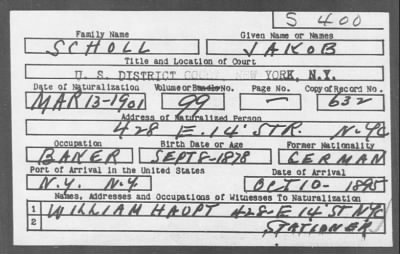 S 400
Family Name Given Name or Names
SCHOLL JAKOB
Title and Location of Court
U. S. DISTRICT COURT, NEW YORK, N.Y.
Date of Naturalization Volume or Bundle No. Page No. Copy of Record No.
MAR 13-1901 99 — 632
Address of Naturalized Person
428 E. 14 STR. N.Y.C.
Occupation Birth Date or Age Former Nationality
BAKER SEPT 8-1878 GERMAN
Port of Arrival in the United States Date of Arrival
N.Y. N.Y. OCT 10- 1895
Names, Addresses and Occupations of Witnesses To Naturalization
1 WILLIAM HAUPT 428 E 14 ST NYC
2 STATIONER